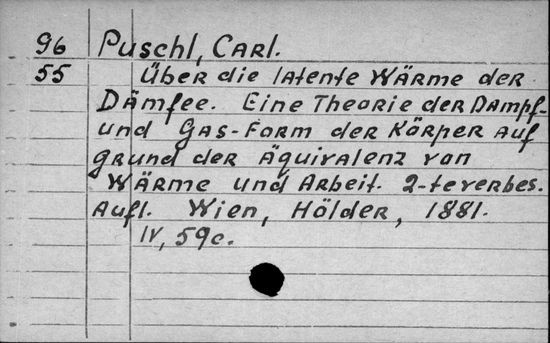 96 Puschl, Carl.
55 Über die latente Wärme der
Dämfee. Eine Theorie der Dampf-
und Gas-Form der Körper auf
grund der Äquivalenz von
Wärme und Arbeit. 2-te verbes.
Aufl. Wien, Hölder, 1881.
IV, 59c.